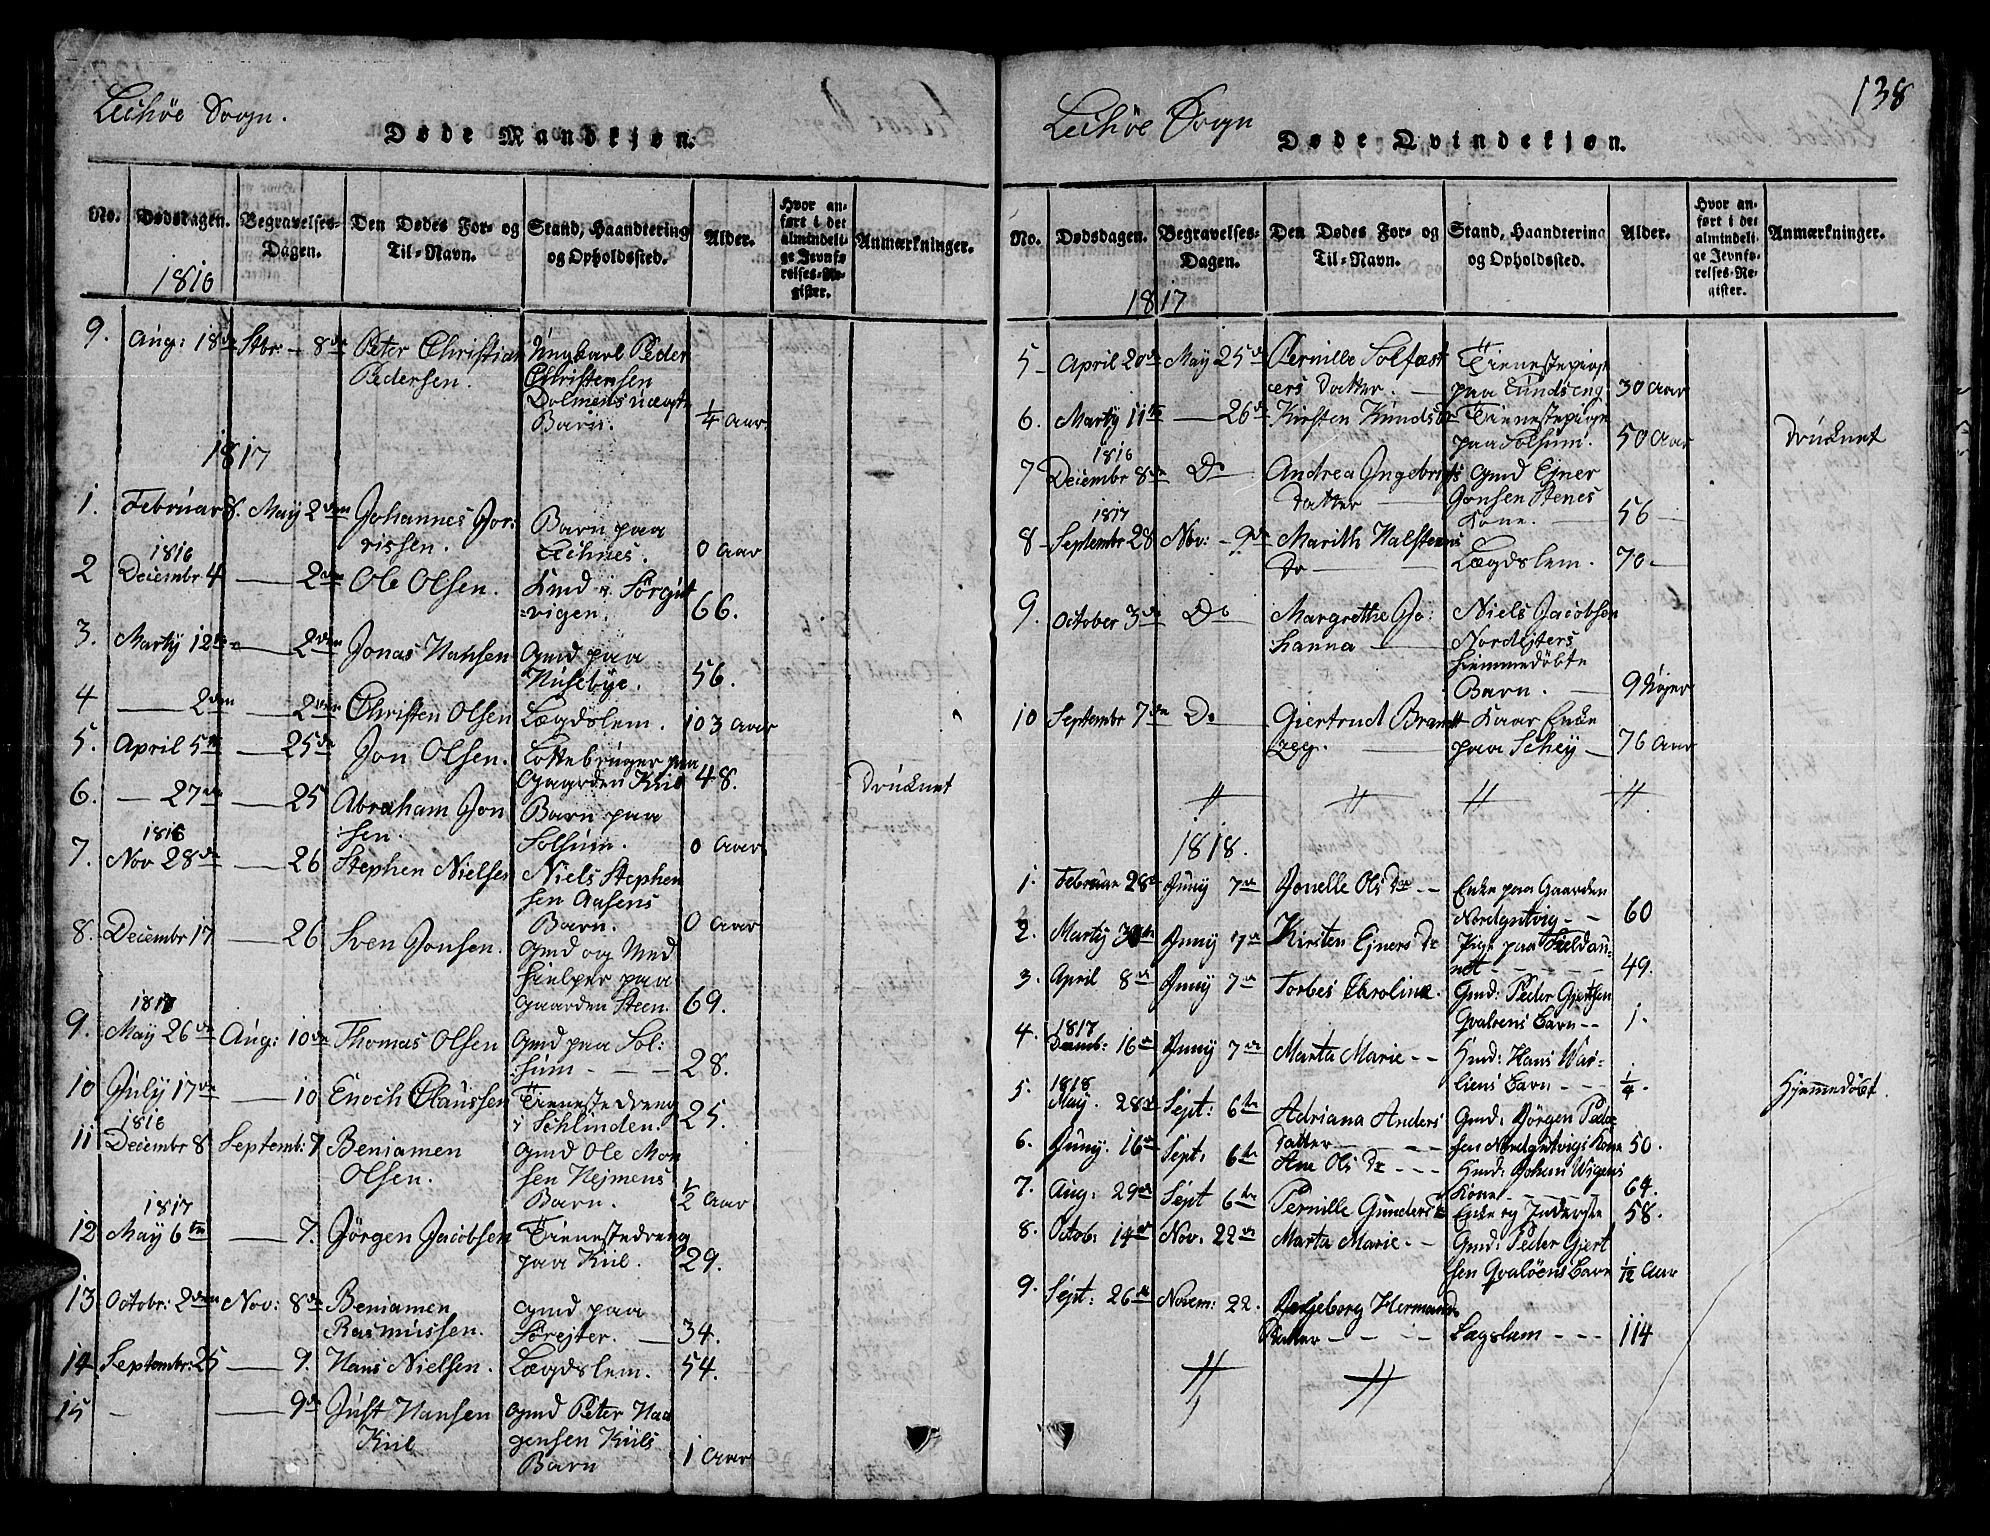 Leihöe Sogn.
Døde Mandkjøn.
No. Dødsdagen. Begravelses-Dagen. Den Dødes For- og Til-Navn. Stand, Haandtering og Opholdssted. Alder. Hvor anført i det almindelige Jevnførelses-Register. Anmærkninger.
1816
9. Aug: 18de Stbr - 8de Peter Christian Ungkarl Peder
Pedersen. Christensen
Dolmens uægte
Barn. 1/4 Aar
1817
1. Februar 8. May 2den Johannes Jo-
rissen. Barn paa
Leihnes. 0 Aar
1816
2 Deicembr 4 — 2den Ole Olsen. Hmd i Sörgut
vigen. 66.
3. Martÿ 12te — 2den Jonas Hansen Gmd paa
Husebÿe. 56.
4 — 2den — 2den Christen Olsen Lægdslem. 103 Aar
5. April 5te — 25de Jon Olsen. Lottebruger paa
Gaarden Kiil 48.
6. — 27de — 25 Abraham Jon Barn paa
sen. Solsum. 0 Aar. Drucknet
1816
7. Nov 28de — 26 Stephen Nielsen Niels Stephen
sen Aasens
Barn. 0 Aar
8. Decembr 17 — 26 Sven Jonsen. Gmd og Med
hielper paa
Gaarden Steen. 69.
1817
9. May 26de Aug: 10de Thomas Olsen Gmd paa Sol:
sum - - - 28.
10 July 17de — 10 Enoch Claussen Tienestedreng
i Schlinden. 25.
1816
11 Decembr 8 Septemb: 7 Beniamen Gmd Ole Mon
Olsen. sen Hejmens
Barn. 1/2 Aar
1817
12 May 6te — 7. Jörgen Jacobsen Tienestedreng
paa Kiil. 29.
13 Octobr: 2den Nov: 8de Beniamen Gmd paa
Rasmussen. Sörejter. — 34.
14 Septembr: 25 — 9. Hans Nielsen. Lægdslem. 54.
15 - — 9de Just Hansen Gmd Peter Haa
Kiil gensen Kiils
Barn 1 Aar
138
Leihöe Sogn
Døde Qvindekjøn.
No. Dødsdagen. Begravelses-Dagen. Den Dødes For- og Til-Navn. Stand, Haandtering og Opholdssted. Alder. Hvor anført i det almindelige Jevnførelses-Register. Anmærkninger.
1817
5 - April 20de May 25de Pernille Solfæst Tienestepige
ers Datter. — paa Lundseng 30 Aar
6. Martÿ 11te — 26de Kirsten Knudsdr Tienestepige
paa Solsum. 50 Aar Drucknet
1816
7 Deicembr 8de Do Andrea Ingebrigts Gmd Ejner
Datter — Jonsen Stenes
Kone. — 56 —
1817
8 - Septembr 28 Nov: - 9de Marith Halstens
Do — Lægdslem. 70 -
9. October 3de Do Margrethe Jo: Niels Jacobsen
hanna — Nordejters
hiemmedöbte
Barn. — 9 Uger
10 Septembr 7de Do Giertrud Brandt Kaar Enke
zeg. — paa Schey — 76 Aar
1818.
1. Februar 28de Juny 7de Jonelle Ols Dr - - Enke paa Gaarden
Nordgutvig - - 60
2. Marty 30te Juny 7de Kirsten Ejners Dr Pige paa Fieldau-
net - - - - 49.
3. April 8de Juny 7de Torbes Caroline. Gmd: Peder Gjertsen
Qvaloens Barn - - 1.
1817
4. Decemb: 16de Juny 7de Marta Marie - - Hmd: Hans War-
liens Barn - - - 1/4.
1818
5. May. 28de Sept: 6te Adriana Anders Gmd: Jörgen Peder
Datter - - - sen Nordgutvigs Kone 50. Hjemmedöbt.
6. Juny. 16de Sept: 6te Ane Ols Dr - - - Hmd: Johan Wigens
Kone - - - - 64.
7. Aug: 29de Sept 6te Pernille Gunders Dr Enke og Inderste 58.
8. Octob: 14de Nov: 22de Marta Marie - - Gmd: Peder Gjert
sen Qvalöens Barn 1/12 Aar
9. Sept: 26de Novem: 22. Ingeborg Hermands
Datter - - - Lagslem - - - 114